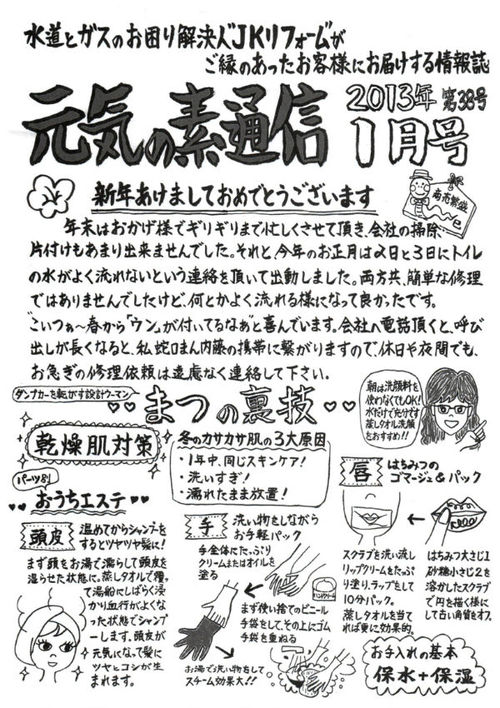 水道とガスのお困り解決人"JKリフォーム"が
ご縁のあったお客様にお届けする情報誌
元気の素通信
2013年 第38号
1月号
新年あけましておめでとうございます
商売繁盛
巳
年末はおかげ様でギリギリまで忙しくさせて頂き、会社の掃除、
片付けもあまり出来ませんでした。それと、今年のお正月は2日と3日にトイレ
の水がよく流れないという連絡を頂いて出動しました。両方共、簡単な修理
ではありませんでしたけど、何とかよく流れる様になって良かったです。
"こいつぁ〜春から「ウン」が付いてるなあ"と喜んでいます。会社へ電話頂くと、呼び
出しが長くなると、私蛇口まん内藤の携帯に繋がりますので、休日や夜間でも、
お急ぎの修理依頼は遠慮なく連絡して下さい。
ダンプカーを転がす設計ウーマン
まつの裏技
朝は洗顔料を
使わなくてもOK!
水だけで充分です
蒸しタオル洗顔
をおすすめ!!
乾燥肌対策
冬のカサカサ肌の3大原因
・1年中、同じスキンケア!
・洗いすぎ!
・濡れたまま放置!
パーツ別
おうちエステ
頭皮
温めてからシャンプーを
するとツヤツヤ髪に!
まず頭をお湯で濡らして頭皮を
湿らせた状態に。蒸しタオルで種っ
て湯船にしばらく浸
かり血行がよくなっ
た状態でシャンプ
ーします。頭皮が
元気になって髪に
ツヤとコシが生
まれます。
手
洗い物をしながら
お手軽パック
手全体にたっぷり
クリームまたはオイルを
塗る
ハンドクリーム
まず使い捨てのビニール
手袋をして、その上にゴム
手袋を重ねる
お湯で洗い物をして
スチーム効果大!!
唇
はちみつの
ゴマージュ&パック
はちみつ大さじ1
砂糖小さじ2を
溶かしたスクラブ
で円を描く様に
して古い角質をオフ。
スクラブを洗い流し
リップクリームをたっぷ
り塗り、ラップをして
10分パック。
蒸しタオルを当て
れば更に効果的。
お手入れの基本
保水+保湿